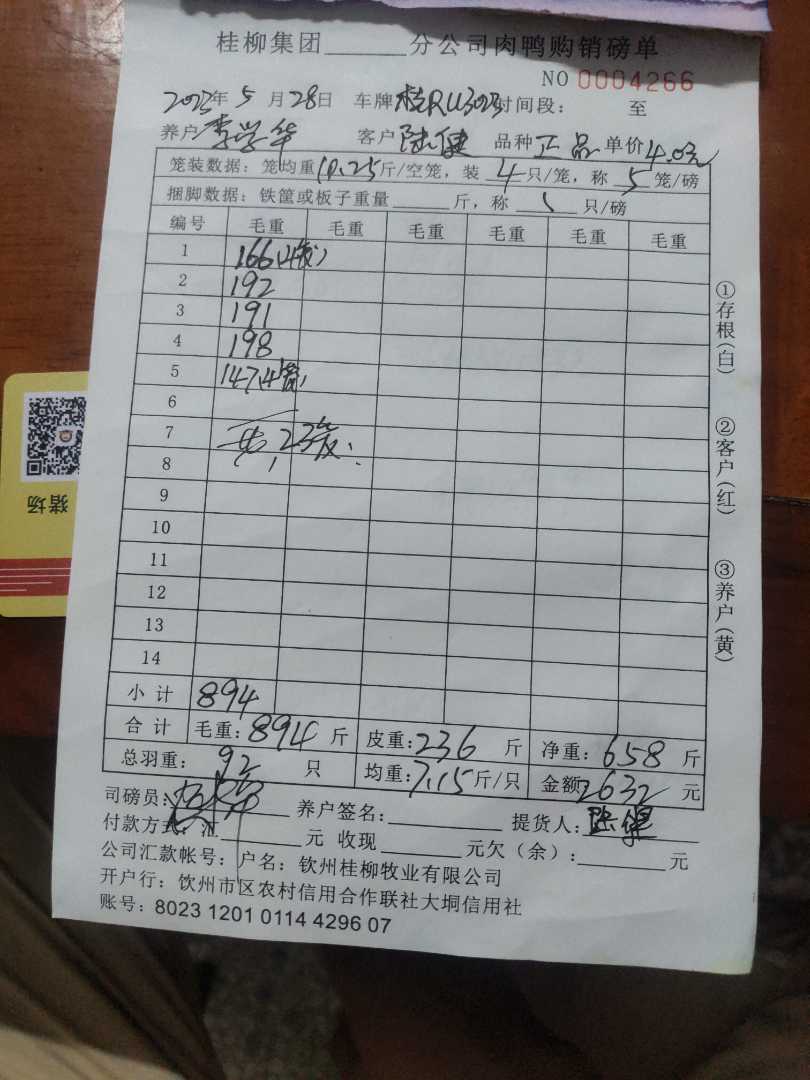 桂柳集团______分公司肉鸭购销磅单
NO 0004266
2023年 5 月 28日 车牌桂RU3023时间段： 至
养户李学华 客户陆健 品种正品 单价4.0元
笼装数据：笼均重10.25斤/空笼，装 4 只/笼，称 5 笼/磅
捆脚数据：铁筐或板子重量______斤，称 ______ 只/磅
编号 毛重 毛重 毛重 毛重 毛重 毛重
1 166(4笼)
2 192
3 191
4 198
5 147(4笼)
6
7 共23笼
8
9
10
11
12
13
14
小 计 894
合 计 毛重：894 斤 皮重：236 斤 净重：658 斤
总羽重： 92 只 均重：7.15斤/只 金额2632 元
司磅员： 养户签名：______ 提货人：陆健
付款方式：汇______元 收现______元欠（余）：______元
公司汇款帐号：户名：钦州桂柳牧业有限公司
开户行：饮州市区农村信用合作联社大垌信用社
账号：8023 1201 0114 4296 07
①存根（白）
②客户（红）
③养户（黄）
猪场